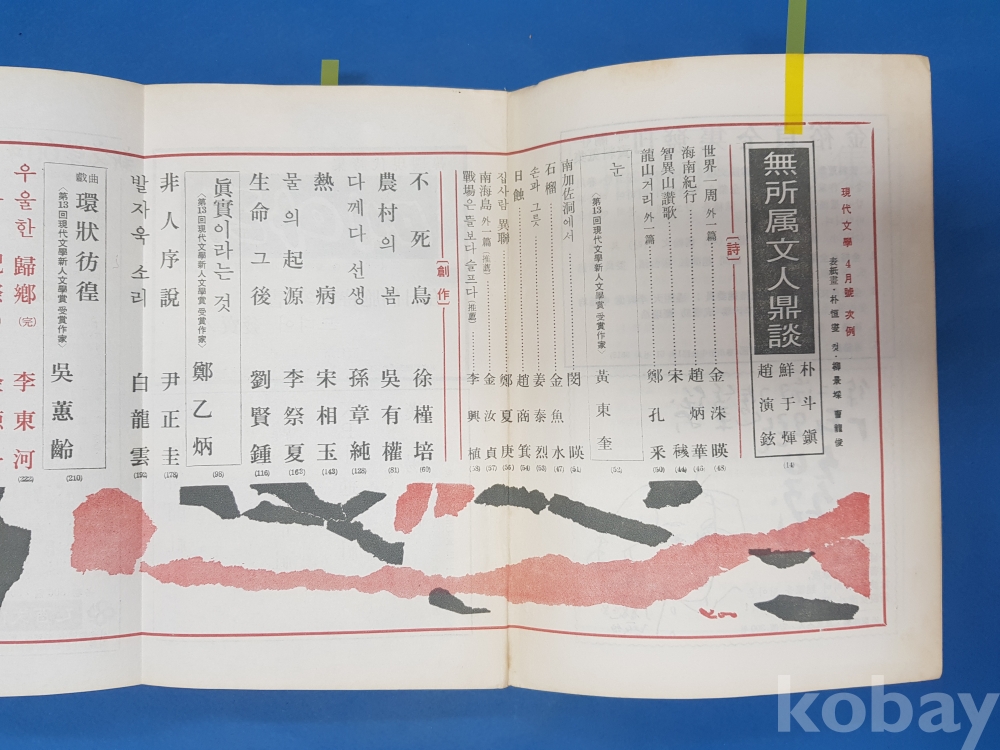 現代文學 4月號 次例
表紙畵·朴恒燮 컷·
無所属文人鼎談
朴斗鎭
鮮于煇
趙演鉉
(14)
[詩]
世界一周 外一篇 金洙暎 (43)
海南紀行 趙炳華 (45)
智異山讃歌 宋 (44)
龍山거리 外一篇 鄭孔釆 (50)
눈 黃東奎 (52)
〈第13回現代文學新人文學賞 受賞作家〉
南加佐洞에서 閔暎 (51)
石榴 金魚水 (47)
손과 그릇 姜泰烈 (53)
日蝕 趙商箕 (54)
집사람 異聯 鄭夏庚 (56)
南海島 外一篇 (推薦) 金汝貞 (57)
戰場은 뜰보다 슬프다 (推薦) 李興植 (58)
[創作]
不死鳥 徐槿培 (60)
農村의 봄 吳有權 (81)
다께다 선생 孫章純 (128)
熱病 宋相玉 (143)
물의 起源 李祭夏 (162)
生命 그 後 劉賢鍾 (116)
眞實이라는 것 鄭乙炳 (98)
〈第13回現代文學新人文學賞 受賞作家〉
非人序說 尹正圭 (178)
발자욱 소리 白龍雲 (192)
戱曲 環狀彷徨 吳蕙齡 (210)
〈第13回現代文學新人文學賞 受賞作家〉
우울한 歸鄕 (完) 李東河 (222)
kobay